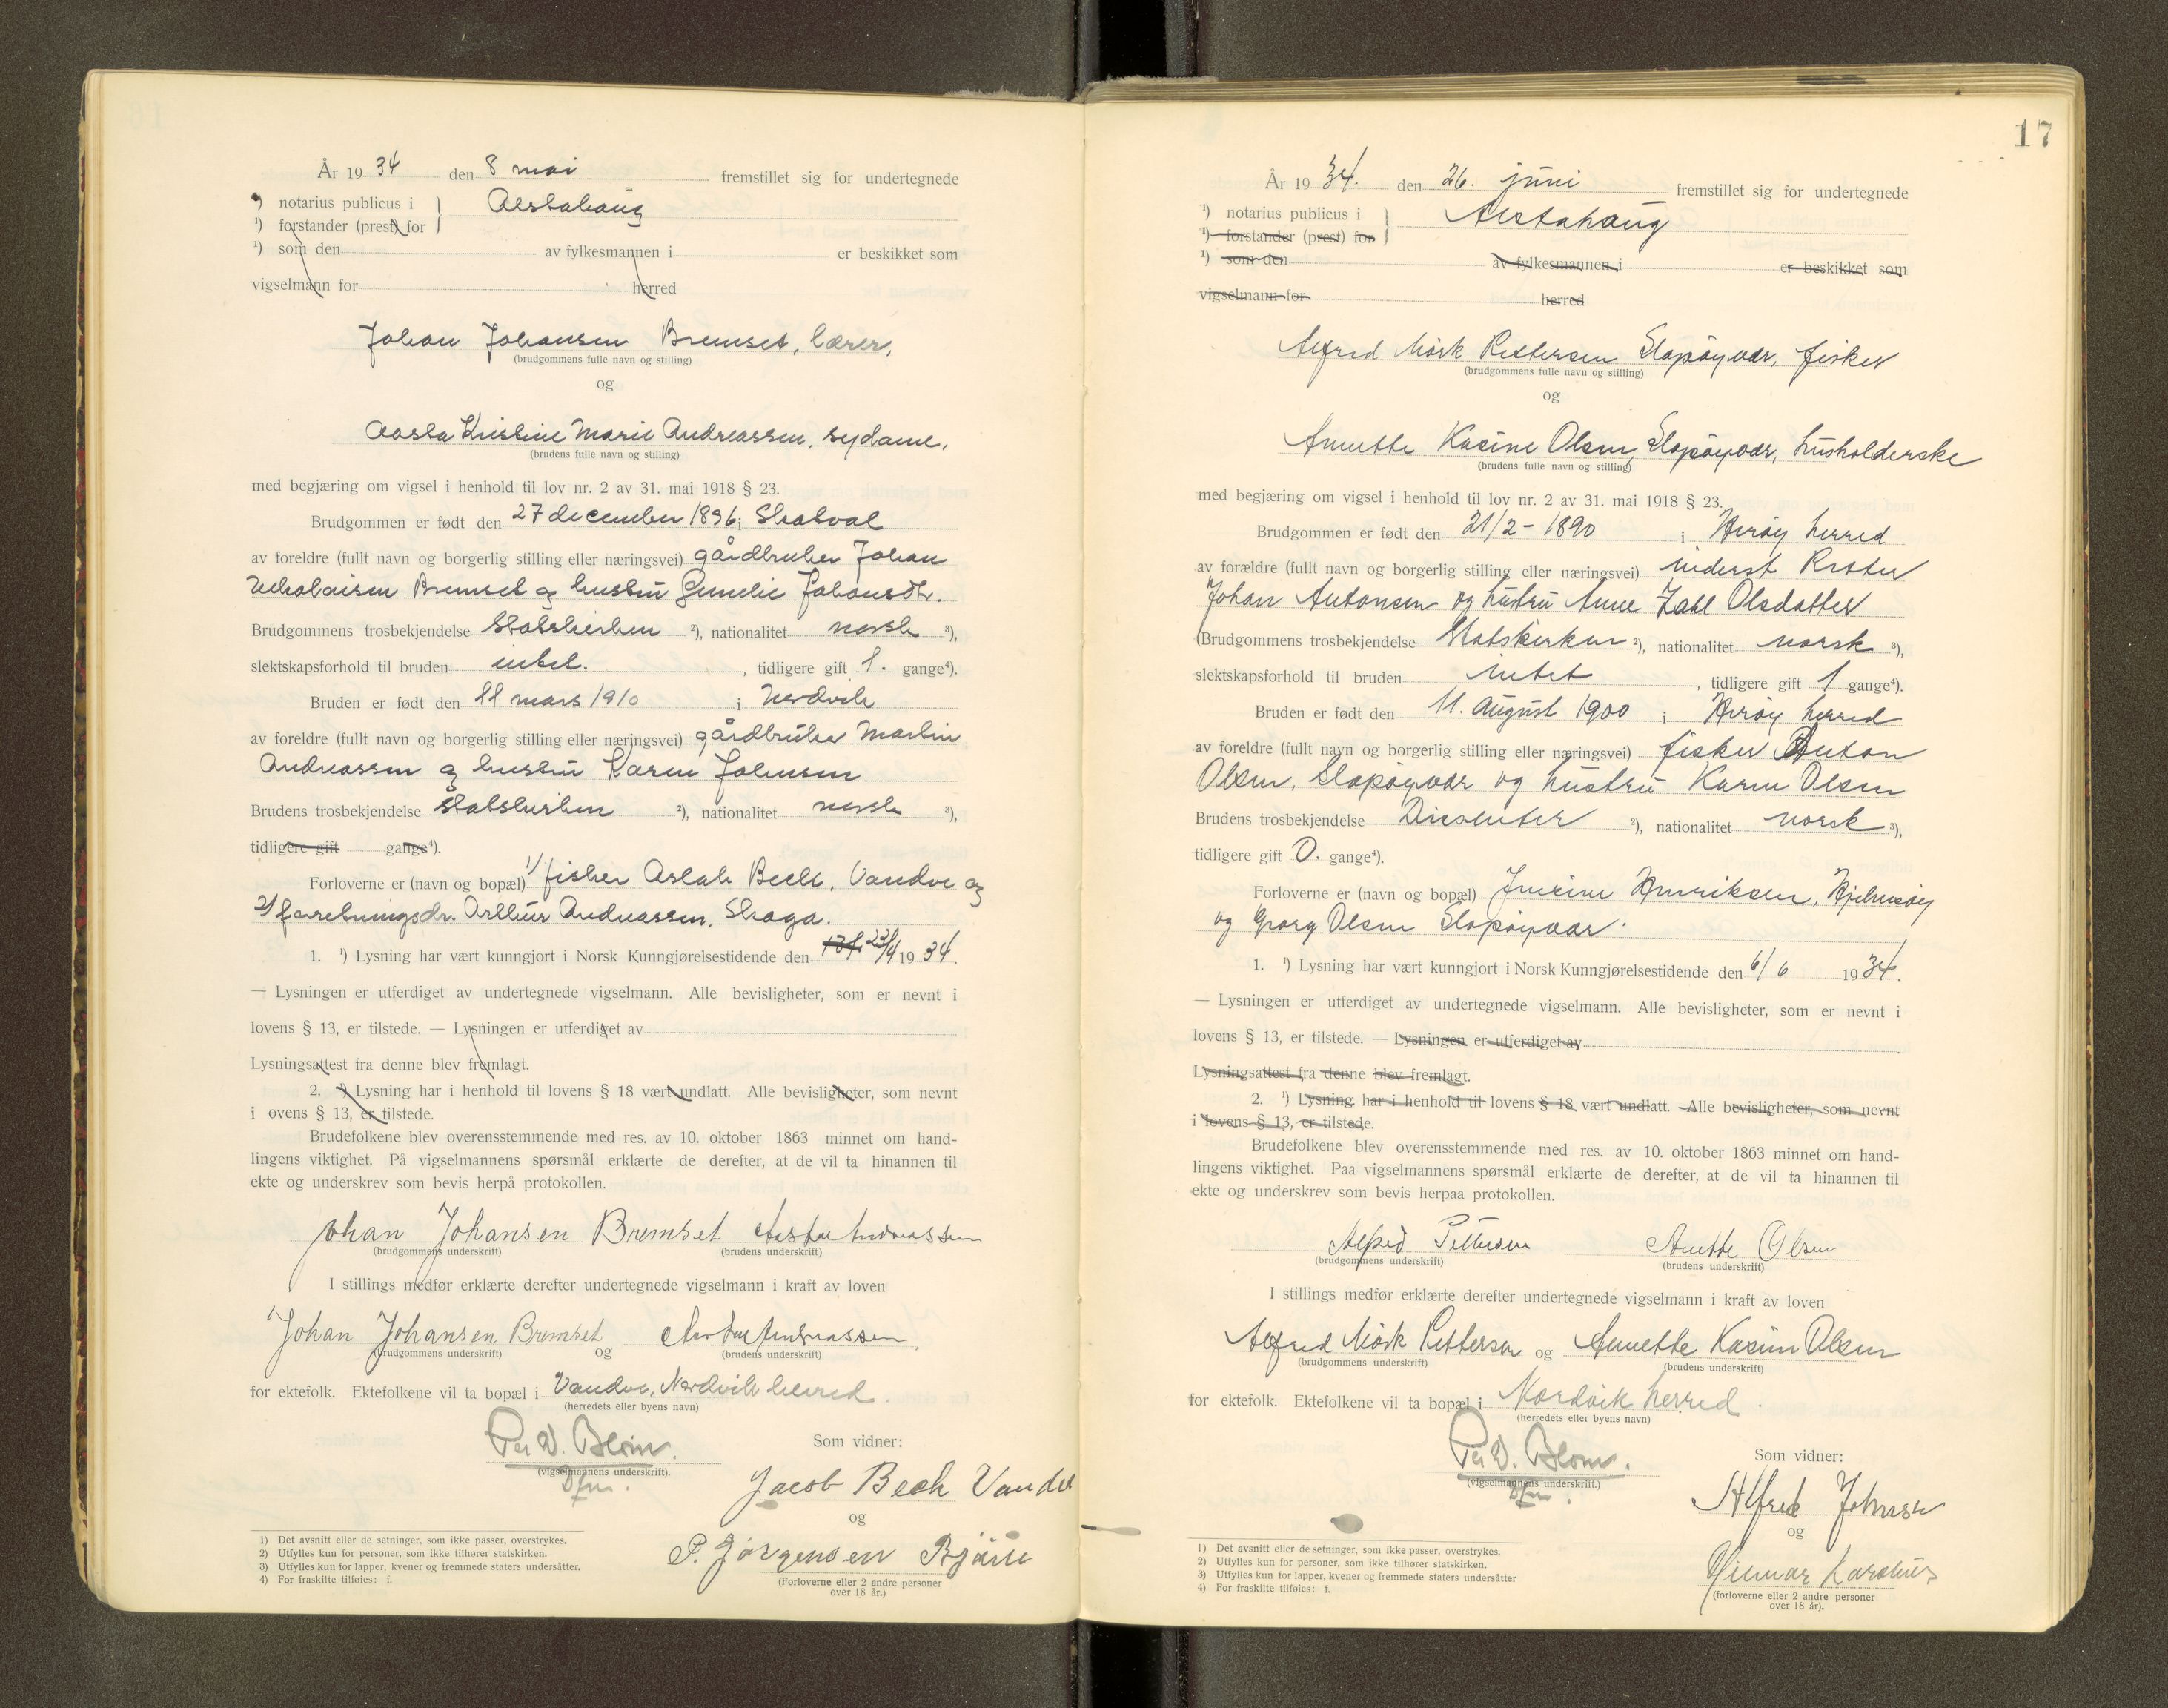 År 19 34 den 8 mai fremstillet sig for undertegnede
¹) notarius publicus i Alstahaug
¹) forstander (prest) for
¹) som den av fylkesmannen i er beskikket som
vigselmann for herred
Johan Johansen Bremset, lærer,
(brudgommens fulle navn og stilling)
og
Aasta Kristine Marie Andreassen, sydame,
(brudens fulle navn og stilling)
med begjæring om vigsel i henhold til lov nr. 2 av 31. mai 1918 § 23.
Brudgommen er født den 27 december 1896 i Skatval
av foreldre (fullt navn og borgerlig stilling eller næringsvei) gårdbruker Johan
Nikolaisen Bremset og hustru Johansdtr.
Brudgommens trosbekjendelse Statskirken ²), nationalitet norsk ³),
slektskapsforhold til bruden intet. , tidligere gift 1. gange⁴).
Bruden er født den 11 mars 1910 i Nordvik
av foreldre (fullt navn og borgerlig stilling eller næringsvei) gårdbruker Martin
Andreassen og hustru Karen Johnsen
Brudens trosbekjendelse Statskirken ²), nationalitet norsk ³),
tidligere gift gange⁴).
Forloverne er (navn og bopæl) 1/ fisker Aslak Bech, Vandve og
2/ forretningsdr. Arthur Andreassen, Skaga.
1. ¹) Lysning har vært kunngjort i Norsk Kunngjørelsestidende den 23/4 19 34.
— Lysningen er utferdiget av undertegnede vigselmann. Alle bevisligheter, som er nevnt i
lovens § 13, er tilstede. — Lysningen er utferdiget av
Lysningsattest fra denne blev fremlagt.
2. ¹) Lysning har i henhold til lovens § 18 vært undlatt. Alle bevisligheter, som nevnt
i ovens § 13, er tilstede.
Brudefolkene blev overensstemmende med res. av 10. oktober 1863 minnet om hand-
lingens viktighet. På vigselmannens spørsmål erklærte de derefter, at de vil ta hinannen til
ekte og underskrev som bevis herpå protokollen.
Johan Johansen Bremset Aasta Andreassen
(brudgommens underskrift) (brudens underskrift)
I stillings medfør erklærte derefter undertegnede vigselmann i kraft av loven
Johan Johansen Bremset og Aasta Andreassen
(brudgommens underskrift) (brudens underskrift)
for ektefolk. Ektefolkene vil ta bopæl i Vandve, Nordvik herred.
(herredets eller byens navn)
Per W. Blom.
(vigselmannens underskrift).
Dfm.
Som vidner:
Jacob Bech Vandve
og
P. Jørgensen
(Forloverne eller 2 andre personer
over 18 år.)
1) Det avsnitt eller de setninger, som ikke passer, overstrykes.
2) Utfylles kun for personer, som ikke tilhører statskirken.
3) Utfylles kun for lapper, kvener og fremmede staters undersåtter.
4) For fraskilte tilføies: f.
17
År 19 34. den 26. juni fremstillet sig for undertegnede
¹) notarius publicus i Alstahaug
¹) forstander (prest) for
¹) som den av fylkesmannen i er beskikket som
vigselmann for herred
Alfred Mørk Pettersen Slapøyvær, fisker
(brudgommens fulle navn og stilling)
og
Annette Kasine Olsen, Slapøyvær, husholderske
(brudens fulle navn og stilling)
med begjæring om vigsel i henhold til lov nr. 2 av 31. mai 1918 § 23.
Brudgommen er født den 21/2 - 1890 i Herøy herred
av forældre (fullt navn og borgerlig stilling eller næringsvei) inderst Peter
Johan Antonsen og hustru Anne Zahl Olsdatter
(Brudgommens trosbekjendelse Statskirken ²), nationalitet norsk ³),
slektskapsforhold til bruden intet , tidligere gift 1 gange⁴).
Bruden er født den 11. August 1900 i Herøy herred
av foreldre (fullt navn og borgerlig stilling eller næringsvei) fisker Anton
Olsen, Slapøyvær og hustru Karen Olsen
Brudens trosbekjendelse Dissenter ²), nationalitet norsk ³),
tidligere gift 0. gange⁴).
Forloverne er (navn og bopæl) Henriksen, Hjelmsøy
og Georg Olsen Slapøyvær.
1. ¹) Lysning har vært kunngjort i Norsk Kunngjørelsestidende den 6/6 19 34.
— Lysningen er utferdiget av undertegnede vigselmann. Alle bevisligheter, som er nevnt i
lovens § 13, er tilstede. — Lysningen er utferdiget av
Lysningsattest fra denne blev fremlagt.
2. ¹) Lysning har i henhold til lovens § 18 vært undlatt. Alle bevisligheter, som nevnt
i lovens § 13, er tilstede.
Brudefolkene blev overensstemmende med res. av 10. oktober 1863 minnet om hand-
lingens viktighet. Paa vigselmannens spørsmål erklærte de derefter, at de vil ta hinannen til
ekte og underskrev som bevis herpaa protokollen.
Alfred Pettersen Anette Olsen
(brudgommens underskrift) (brudens underskrift)
I stillings medfør erklærte derefter undertegnede vigselmann i kraft av loven
Alfred Mørk Pettersen og Annette Kasine Olsen
(brudgommens underskrift) (brudens underskrift)
for ektefolk. Ektefolkene vil ta bopæl i Nordvik herred.
(herredets eller byens navn)
Per W. Blom.
(vigselmannens underskrift.)
Dfm.
Som vidner:
Alfred Johnsen
og
Hilmar Karolius
(forloverne eller 2 andre personer
over 18 år).
1) Det avsnitt eller de setninger, som ikke passer, overstrykes.
2) Utfylles kun for personer, som ikke tilhører statskirken.
3) Utfylles kun for lapper, kvener og fremmede staters undersåtter
4) For fraskilte tilføies: f.